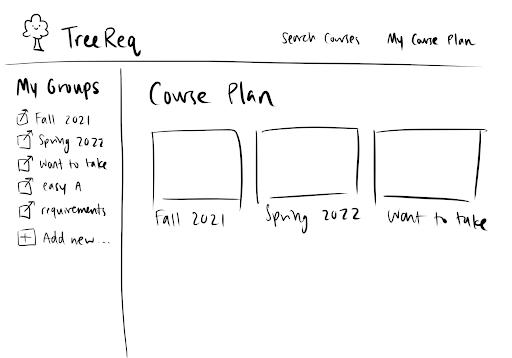 TreeReq
Search Courses
My Course Plan
My Groups
Fall 2021
Spring 2022
want to take
easy A
requirements
Add new...
Course Plan
Fall 2021
Spring 2022
Want to take